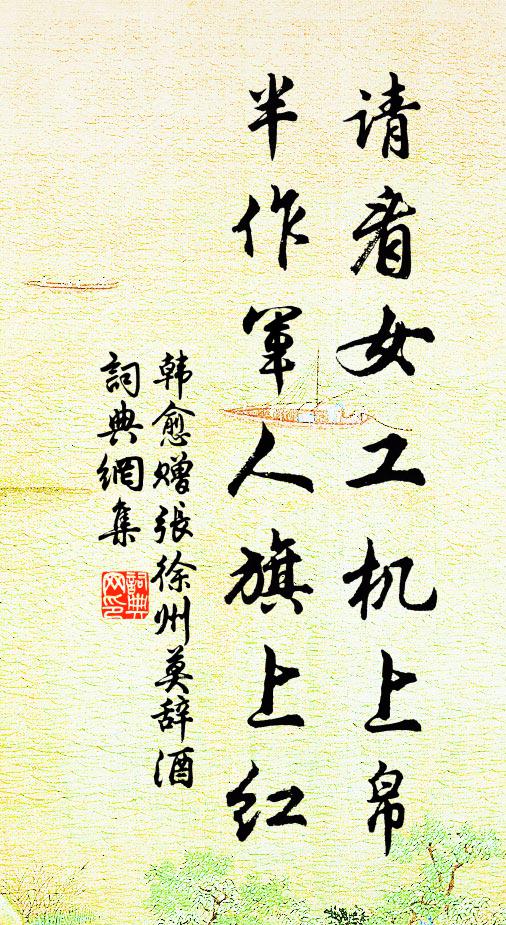 请看女工机上帛
半作军人旗上红
韩愈赠張徐州莫辞酒
詞典網集
詞典
网印